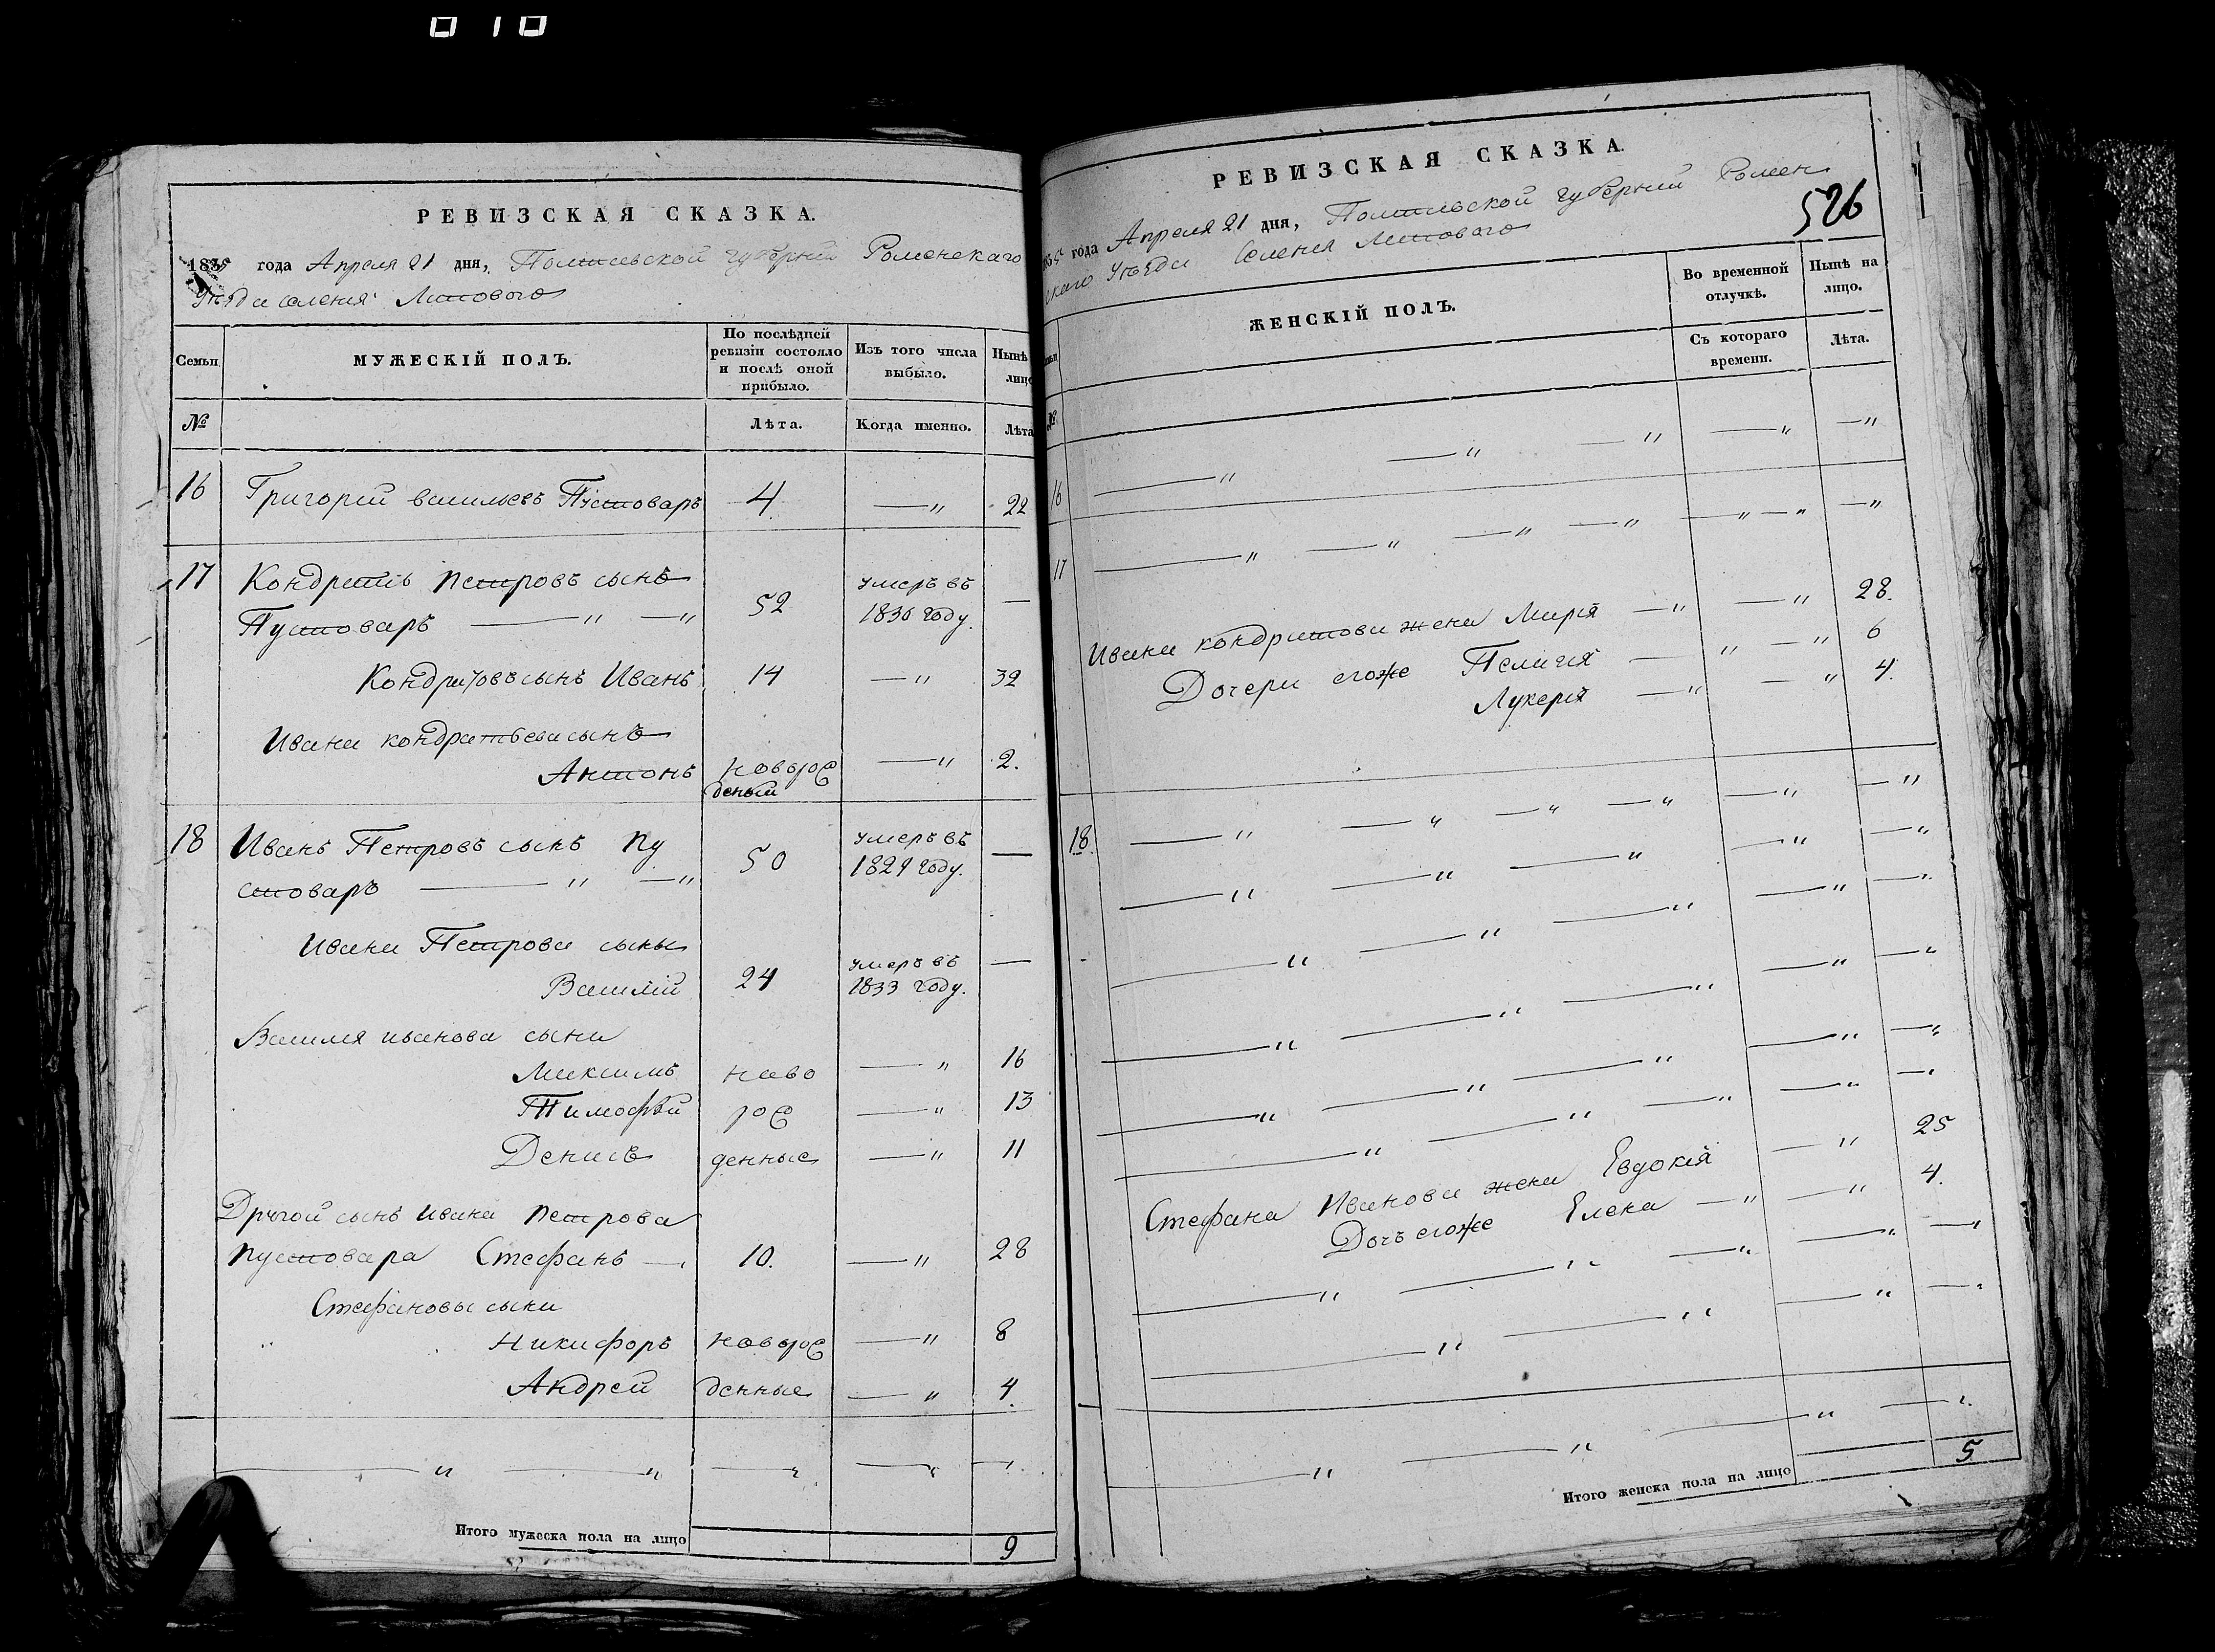 010
РЕВИЗСКАЯ СКАЗКА.
1835 года Апреля 21 дня, Полтавской губернии Роменскаго
Уѣзда селения Липового
Семьи МУЖЕСКІЙ ПОЛЪ. По послѣдней ревизіи состояло и послѣ оной прибыло. Изъ того числа выбыло. Нынѣ лицо
№ Лѣта. Когда именно. Лѣта
16 Григорій васильевъ Пустоваръ 4 —〃 22
17 Кондратъ петровъ сынъ умеръ въ
Пустоваръ —〃 —〃 52 1830 году. —
Кондратовъ сынъ Иванъ 14 —〃 32
Ивана кондратьева сынъ
Антонъ новорож —〃 2.
деный
18 Иванъ Петровъ сынъ пу умеръ въ
стоваръ —〃 —〃 50 1829 году. —
Ивана Петрова сыны умеръ въ —
Василій 24 1833 году.
Василия иванова сыни
Максимъ ново —〃 16
Тимофѣй рож —〃 13
Денисъ денные —〃 11
Другой сынъ ивана петрова
пустовара Стефанъ — 10. —〃 28
Стефановы сыни
Никифоръ новорож —〃 8
Андрей денные —〃 4.
—〃 —〃 —〃 —〃 —〃
Итого мужеска пола на лицо 9
РЕВИЗСКАЯ СКАЗКА.
526
1835 года Апреля 21 дня, Полтавской губерний Ромен
скаго Уѣзда Селения Липового
ЖЕНСКІЙ ПОЛЪ. Во временной отлучкѣ. Нынѣ на лицо.
№ Съ котораго времени. Лѣта.
16 —〃 —〃 —〃 —〃 —〃
17 —〃 —〃 —〃 —〃 —〃 —〃 —〃
Ивана кондратова жена Марія —〃 —〃 28.
Дочери егоже Пелагія —〃 —〃 6
Лукерія —〃 —〃 4.
18. —〃 —〃 —〃 —〃 —〃
—〃 —〃 —〃 —〃 —〃
—〃 —〃 —〃 —〃 —〃
—〃 —〃 —〃 —〃 —〃
—〃 —〃 —〃 —〃 —〃
—〃 —〃 —〃 —〃 —〃
Стефана Иванова жена Евдокія —〃 25
Дочъ егоже Елена —〃 —〃 4.
—〃 —〃 —〃 —〃 —〃
—〃 —〃 —〃 —〃
—〃 —〃 —〃 —〃
Итого женска пола на лицо 5